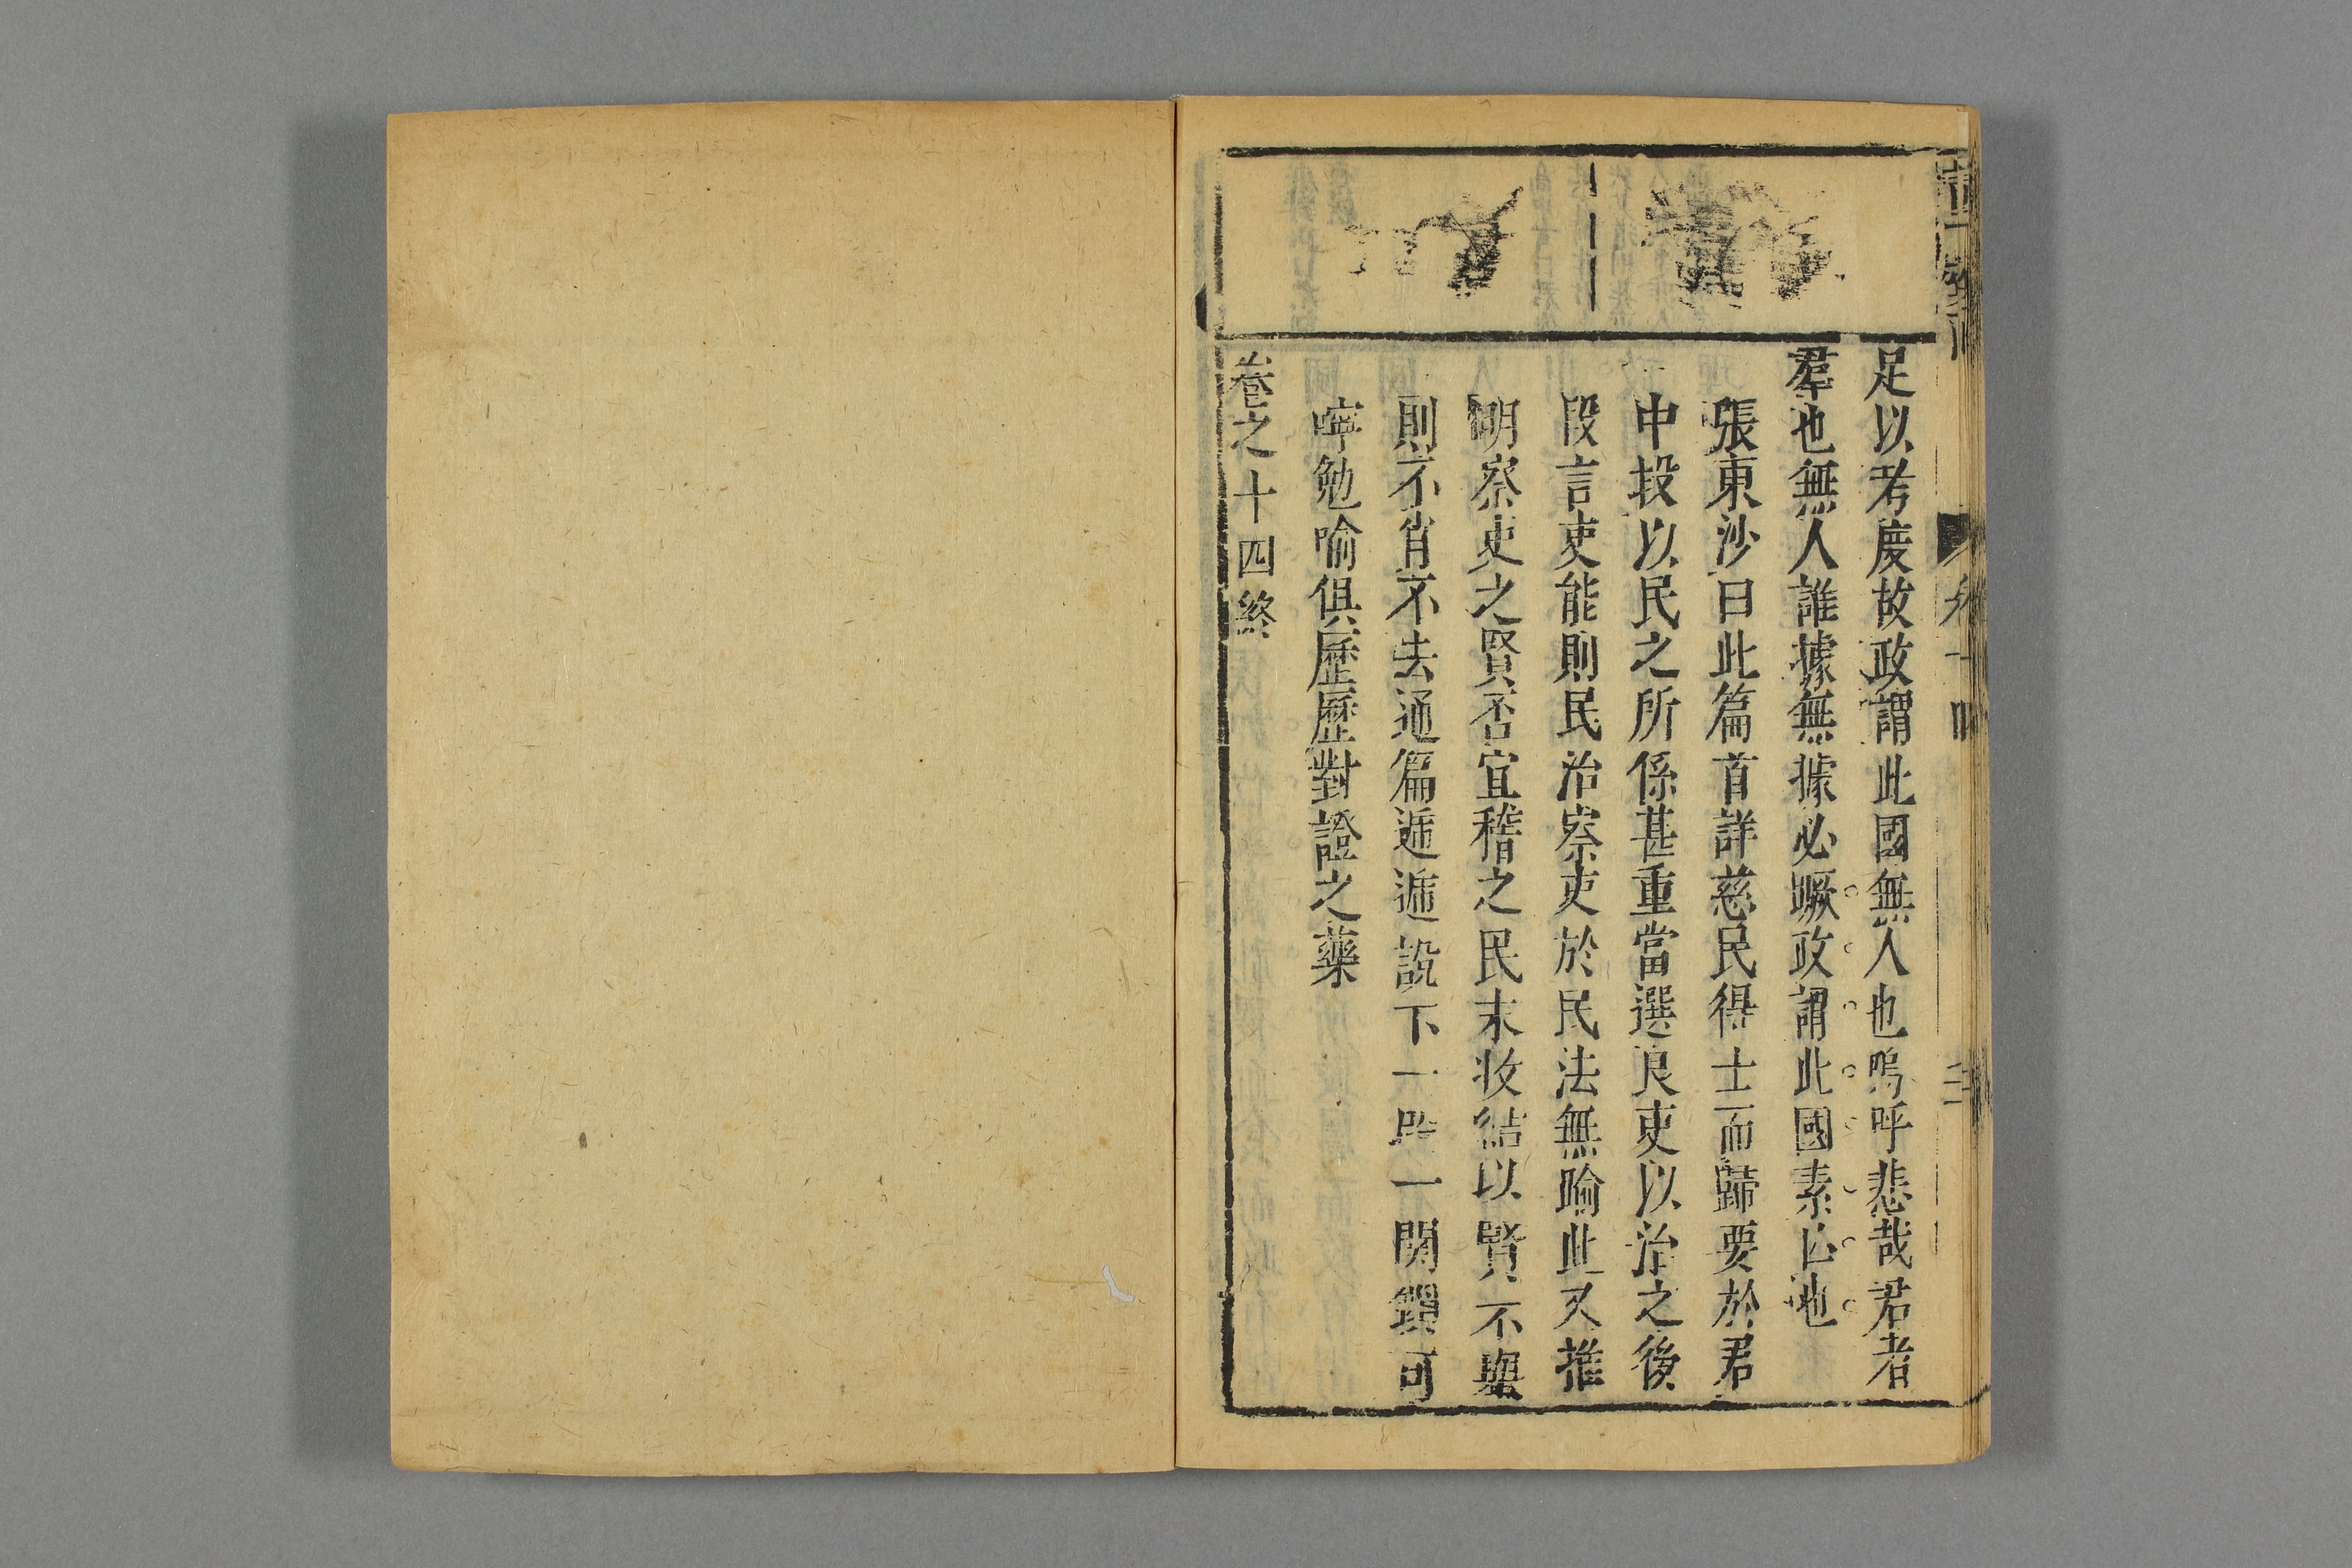 足以考度故政謂此國無人也嗚呼悲哉君者
羣也無人誰據無據必蹶政謂此國素亡也
張東沙曰此篇首詳慈民得士而歸要於君
中投以民之所係甚重當選良吏以治之後
段言吏能則民治察吏於民法無踰此又推
明察吏之賢否宜稽之民末收結以賢不舉
則不肖不去通篇遞遞說下一段一關鎖可
嚀勉喻俱歷歷對證之藥
卷之十四終